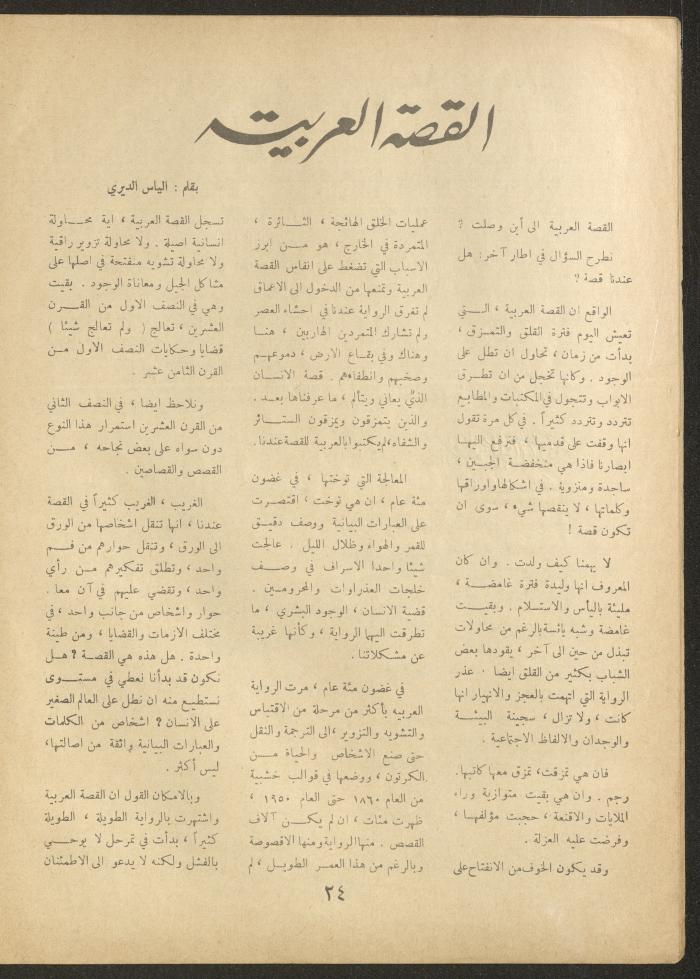 القصة العربية
بقلم : الياس الديري
القصة العربية الى أين وصلت ؟
نطرح السؤال في اطار آخر : هل
عندنا قصة ؟
الواقع ان القصة العربية ، الـتي
تعيش اليوم فترة القلق والتمزق ،
بدأت من زمان ، تحاول ان تطل على
الوجود . وكأنها تخجل من ان تطرق
الابواب وتتجول في المكتبات والمطابع
تتردد وتتردد كثيراً . في كل مرة تقول
انها وقفت على قدميها ، فنرفع اليها
ابصارنا فاذا هي منخفضة الجبين ،
ساجدة ومنزوية . في اشكالها واوراقها
وكلماتها ، لا ينقصها شيء ، سوى ان
تكون قصة !
لا يهمنا كيف ولدت . وان كان
المعروف انها وليدة فترة غامضة ،
مليئة باليأس والاستسلام . وبقيت
غامضة وشبه يائسة بالرغم من محاولات
تبذل من حين الى آخر ، يقودها بعض
الشباب بكثير من القلق ايضا . عذر
الرواية التي اتهمت بالعجز والانهيار انها
كانت ، ولا تزال ، سجينة البيئة
والوجدان والالفاظ الاجتماعية .
فان هي تمزقت، تمزق معها كاتبها.
رجم . وان هي بقيت متوازية وراء
الملايات والاقنعة ، حجبت مؤلفها ،
وفرضت عليه العزلة .
وقد يكون الخوف من الانفتاح على
عمليات الخلق الهائجة ، الثـائرة ،
المتمردة في الخارج ، هو من ابرز
الاسباب التي تضغط على انفاس القصة
العربية وتمنعها من الدخول الى الاعماق
لم تغرق الرواية عندنا في احشاء العصر
ولم تشارك المتمردين الهاربين ، هنا
وهناك وفي بقاع الارض ، دموعهم
وصخبهم وانطفاءهم . قصة الانسان
الذي يعاني ويتألم ، ما عرفناها بعد .
والذين يتمزقون ويمزقون الستائر
والشفاه، لم يكتبوا بالعربية للقصة عندنا.
المعالجة التي توختها ، في غضون
مئة عام ، ان هي توخت ، اقتصرت
على العبارات البيانية ووصف دقيق
للقمر والهواء وظلال الليل . عالجت
شيئا واحدا الاسراف في وصف
خلجات العذراوات والمحرومين .
قضية الانسان ، الوجود البشري ، ما
تطرقت اليها الرواية ، وكأنها غريبة
عن مشكلاتنا .
في غضون مئة عام ، مرت الرواية
العربيه بأكثر من مرحلة من الاقتباس
والتشويه والتزوير ، الى الترجمة والنقل
حتى صنع الاشخاص والحياة من
الكرتون ، ووضعها في قوالب خشبية
من العام ١٨٦٠ حتى العام ١٩٥٠ ،
ظهرت مئات ، ان لم يكن آلاف
القصص . منها الرواية ومنها الاقصوصة
وبالرغم من هذا العمر الطويل ، لم
تسجل القصة العربية ، اية محـاولة
انسانية اصيلة . ولا محاولة تزوير راقية
ولا محاولة تشويه منفتحة في اصلها على
مشاكل الجيل ومعاناة الوجود . بقيت
وهي في النصف الاول من القرن
العشرين ، تعالج ( ولم تعالج شيئا )
قضايا وحكايات النصف الاول من
القرن الثامن عشر .
ونلاحظ ايضا ، في النصف الثاني
من القرن العشرين استمرار هذا النوع
دون سواه على بعض نجاحه ، من
القصص والقصاصين .
الغريب ، الغريب كثيراً في القصة
عندنا ، انها تنقل اشخاصها من الورق
الى الورق ، وتنقل حوارهم من فم
واحد ، وتطلق تفكيرهم من رأي
واحد ، وتقضي عليهم في آن معا .
حوار واشخاص من جانب واحد ، في
مختلف الازمات والقضايا ، ومن طينة
واحدة . هل هذه هي القصة ؟ هل
نكون قد بدأنا نعطي في مستوى
نستطيع منه ان نطل على العالم الصغير
على الانسان ؟ اشخاص من الكلمات
والعبارات البيانية واثقة من اصالتها،
ليس أكثر .
وبالامكان القول ان القصة العربية
واشتهرت بالرواية الطويلة ، الطويلة
كثيراً ، بدأت في تمرحل لا يوحي
بالفشل ولكنه لا يدعو الى الاطمئنان
٢٤